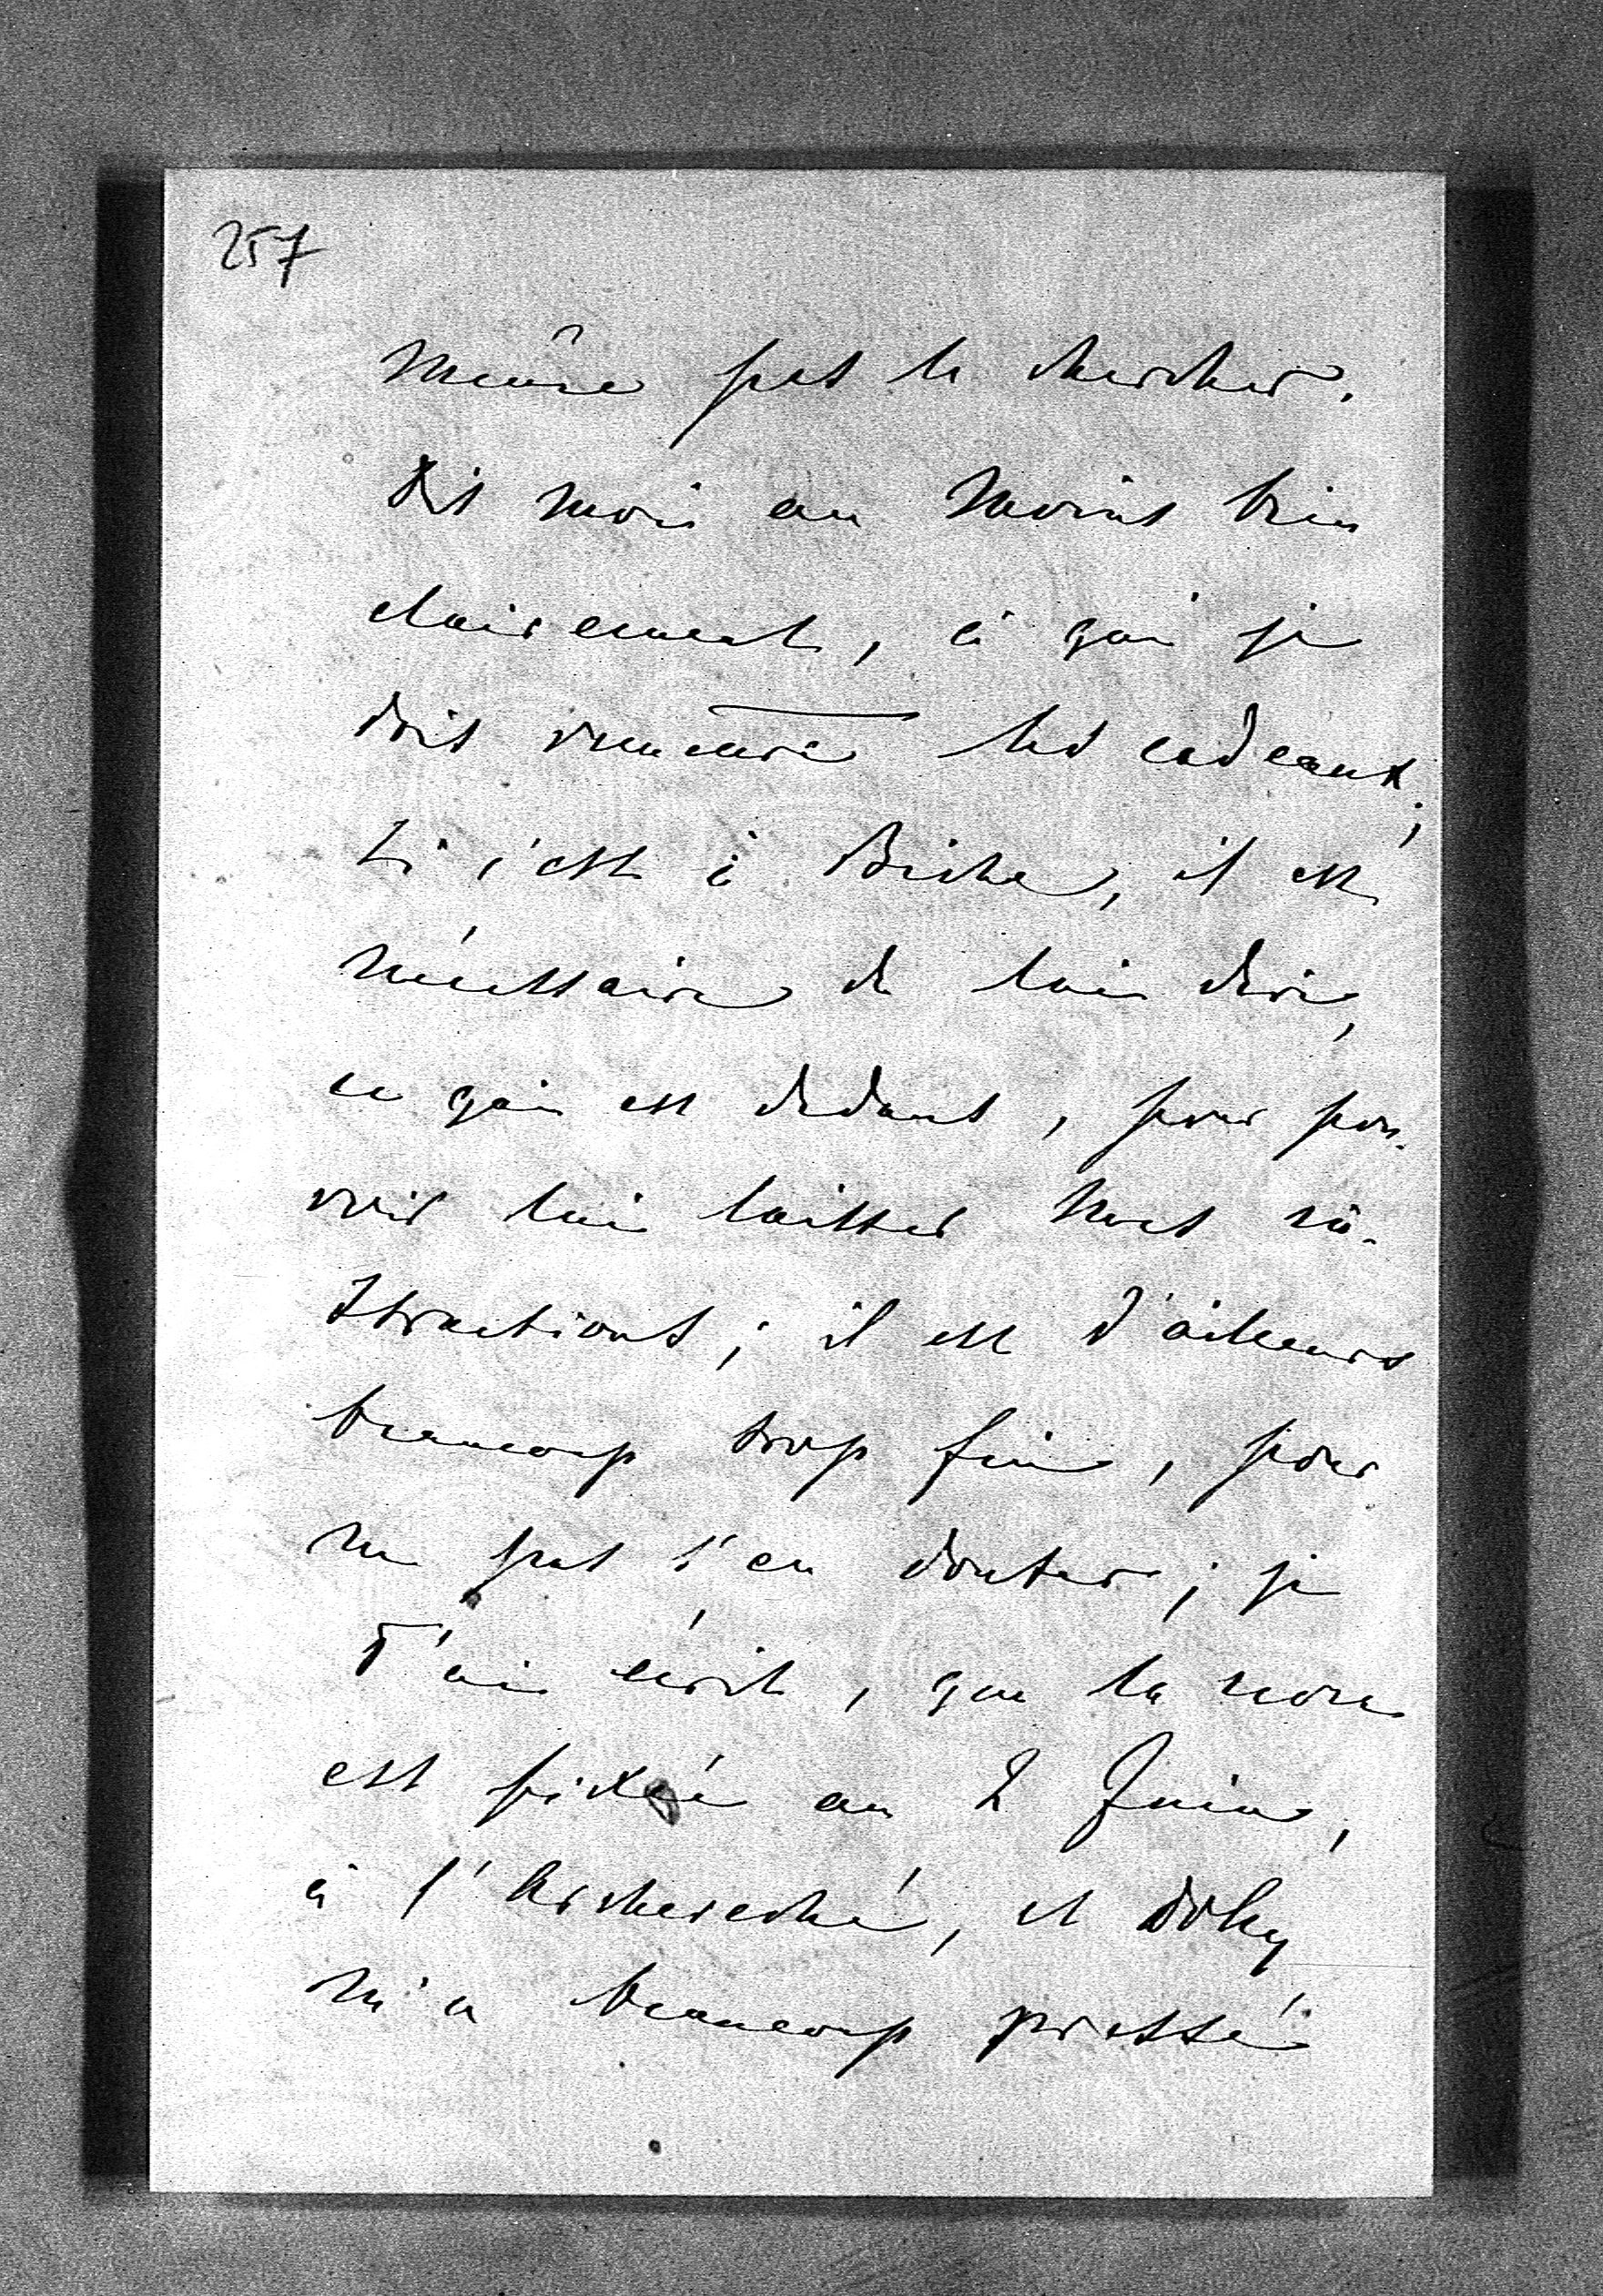 257
même pas le chercher.
Dis moi au moins bien
clairement, à qui je
dois remettre les cadeaux;
si c'est à Biche, il est
nécessaire de lui dire,
ce qui est dedans, pour pou-
voir lui laisser nos in-
structions; il est d'ailleurs
beaucoup trop fin, pour
ne pas s'en douter; je
T'ai écrit, que la noce
est fixée au 2 Juin,
à l'Archevêché, et
m'a beaucoup pressé